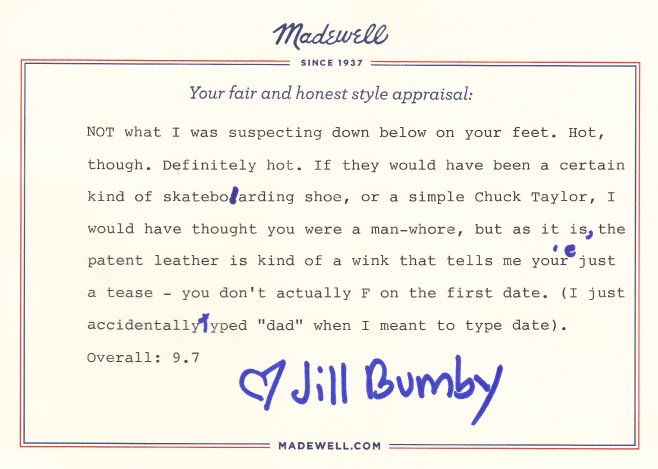 Madewell
SINCE 1937
Your fair and honest style appraisal:
NOT what I was suspecting down below on your feet. Hot,
though. Definitely hot. If they would have been a certain
kind of skateboarding shoe, or a simple Chuck Taylor, I
would have thought you were a man-whore, but as it is, the
patent leather is kind of a wink that tells me you're just
a tease - you don't actually F on the first date. (I just
accidentally typed "dad" when I meant to type date).
Overall: 9.7
♡ Jill Bumby
MADEWELL.COM